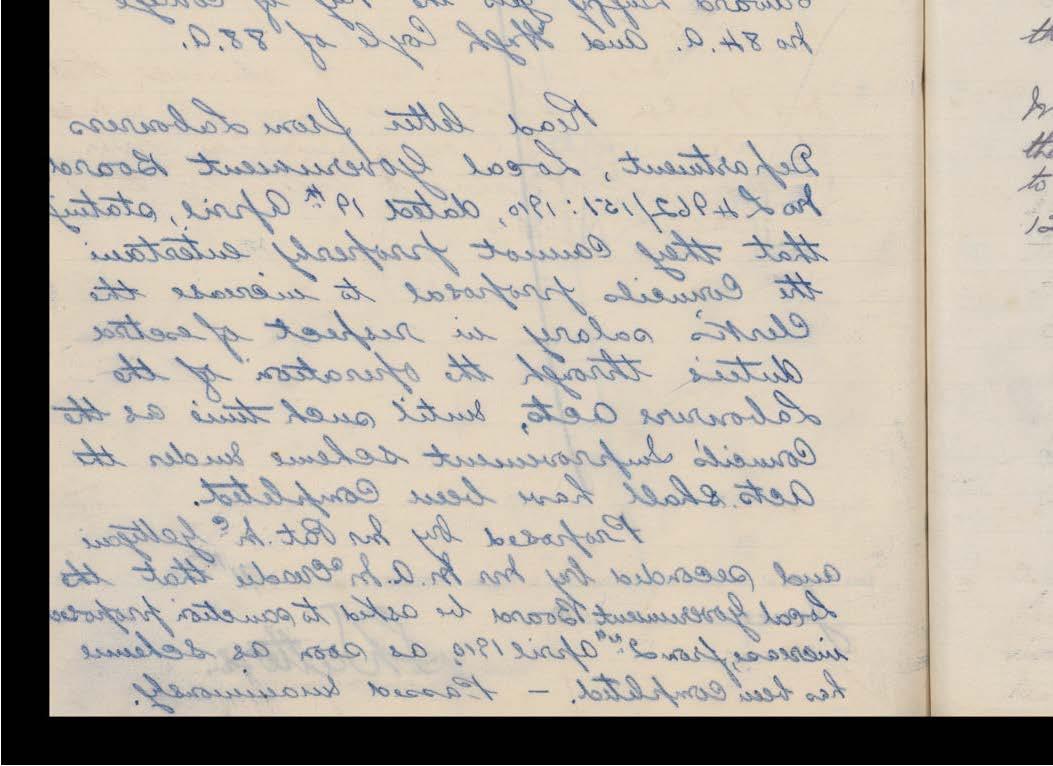 no 84.A. and Hugh Coyle of 88.A.
Read letter from Labourers
Department, Local Government Board
No L 4962/151:1910, dated 19th April, stating
that they cannot properly entertain
the Council's proposal to increase the
Clerk's salary in respect of extra
duties through the operation of the
Labourers Acts, until such time as the
Council's Improvement Scheme under the
Acts shall have been completed.
Proposed by Mr Pat. Mc Gettigan
and seconded by Mr M. A. McCradie that the
Local Government Board be asked to sanction proposed
increase, from 2nd April 1910, as soon as scheme
has been completed. — Passed Unanimously.
th
the
to
12